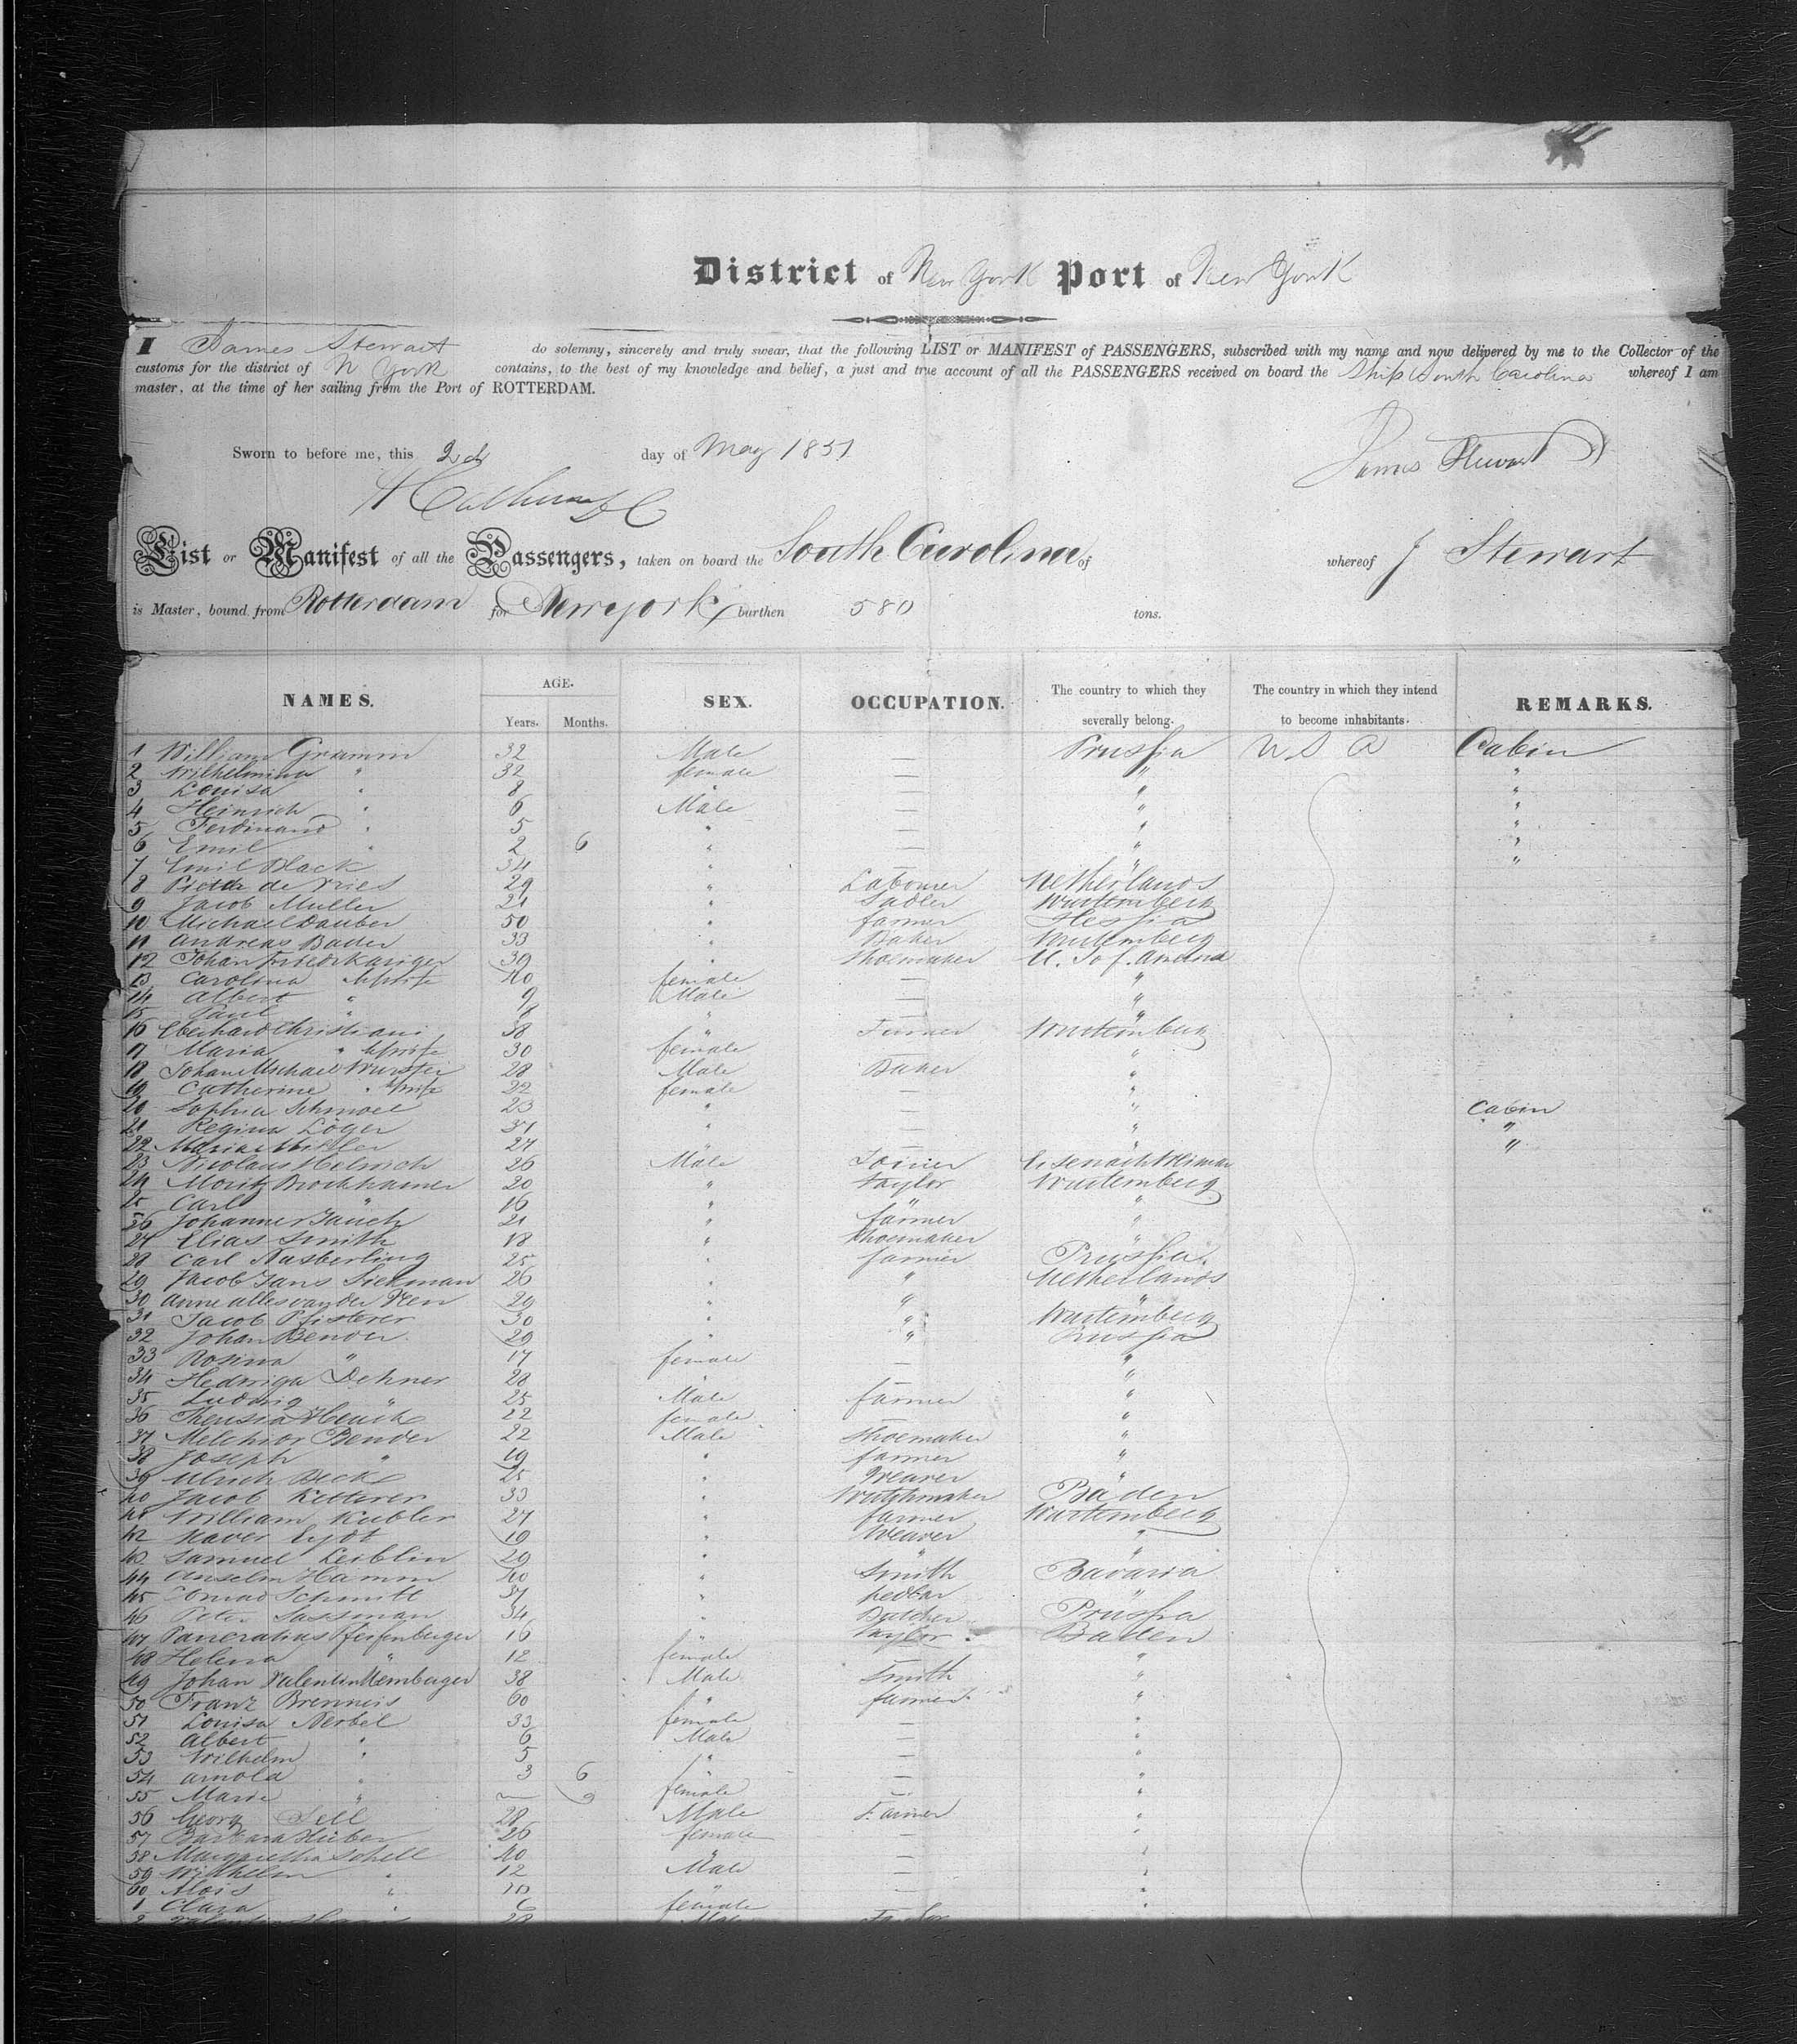 District of New York Port of New York
I James Stewart do solemny, sincerely and truly swear, that the following LIST or MANIFEST of PASSENGERS, subscribed with my name and now delivered by me to the Collector of the
customs for the district of N York contains, to the best of my knowledge and belief, a just and true account of all the PASSENGERS received on board the Ship South Carolina whereof I am
master, at the time of her sailing from the Port of ROTTERDAM.
Sworn to before me, this 2d day of May 1851
James Stewart
List or Manifest of all the Passengers, taken on board the South Carolina of whereof J Stewart
is Master, bound from Rotterdam for Newyork burthen 580 tons.
NAMES. AGE. Years. Months. SEX. OCCUPATION. The country to which they severally belong. The country in which they intend to become inhabitants. REMARKS.
1 William Gramm 32 Male — Prussia U S A Cabin
2 Wilhelmina " 32 female — " "
3 Louisa " 8 " — " "
4 Heinrich " 6 Male — " "
5 Ferdinand " 5 " — " "
6 Emil " 2 6 " — " "
7 Emil Black 34 " — " "
8 Pieter de Vries 29 " Labourer Netherlands
9 Jacob Muller 21 " Sadler Wurtemberg
10 Michael Dauber 50 " farmer Hessia
11 Andreas Bader 33 " Baker Wurtemberg
12 Johan 39 " Shoemaker U. S of. America
13 Carolina " wife 40 female — "
14 Albert " 9 Male — "
15 Paul " 8 " — "
16 Eberhard Christiani 38 " Farmer Wurtemberg
17 Maria " wife 30 female — "
18 Johan Michael Wurster 28 Male Baker "
19 Catherine " wife 22 female — "
20 Sophia 23 " — " Cabin
21 Regina Löger 31 " — " "
22 Maria 24 " — " "
23 Nicolaus Helmich 26 Male Joiner Eisenach Weimar
24 Moritz Brockhamer 20 " taylor Wurtemberg
25 Carl " 16 " " "
26 Johannes Jauch 21 " farmer "
27 Elias Smith 18 " Shoemaker "
28 Carl Nasberling 25 " farmier Prussia.
29 Jacob Jans Siekman 26 " " Netherlands
30 van der Veen 29 " " "
31 Jacob Pfisterer 30 " " Wurtemberg
32 Johan Bender 29 " " Prussia
33 Rosina " 17 female — "
34 Hedwiga Dehner 28 " — "
35 Ludwig " 25 Male farmer "
36 Theresia Hauck 22 female — "
37 Melchior Bender 22 Male Shoemaker "
38 Joseph " 19 " farmer "
39 Ulrich Beck 25 " Weaver "
40 Jacob Ketterer 33 " Watchmaker Baden
41 William Kubler 27 " farmer Wurtemberg
42 Xaver 19 " Weaver "
43 Samuel Leiblin 29 " " "
44 Anselm Hamm 40 " Smith Bavaria
45 Conrad Schmitt 37 " "
46 Peter Sassman 34 " Butcher Prussia
47 Pancratius Pfeifenberger 16 " taylor Baden
48 Helena " 12 female "
49 Johan Valentin Memberger 38 Male Smith "
50 Franz Brenneis 60 " farmer "
51 Louisa Nerbel 33 female — "
52 Albert " 6 Male — "
53 Wilhelm " 5 " — "
54 Arnold " 3 6 " — "
55 Marie " — 9 female — "
56 Georg Sell 28 Male Farmer "
57 Barbara Hieber 26 female — "
58 Margaretha Schell 40 " — "
59 Wilhelm " 12 Male — "
60 Alois " 10 " — "
1 Clara " 6 female "
2 28 Male